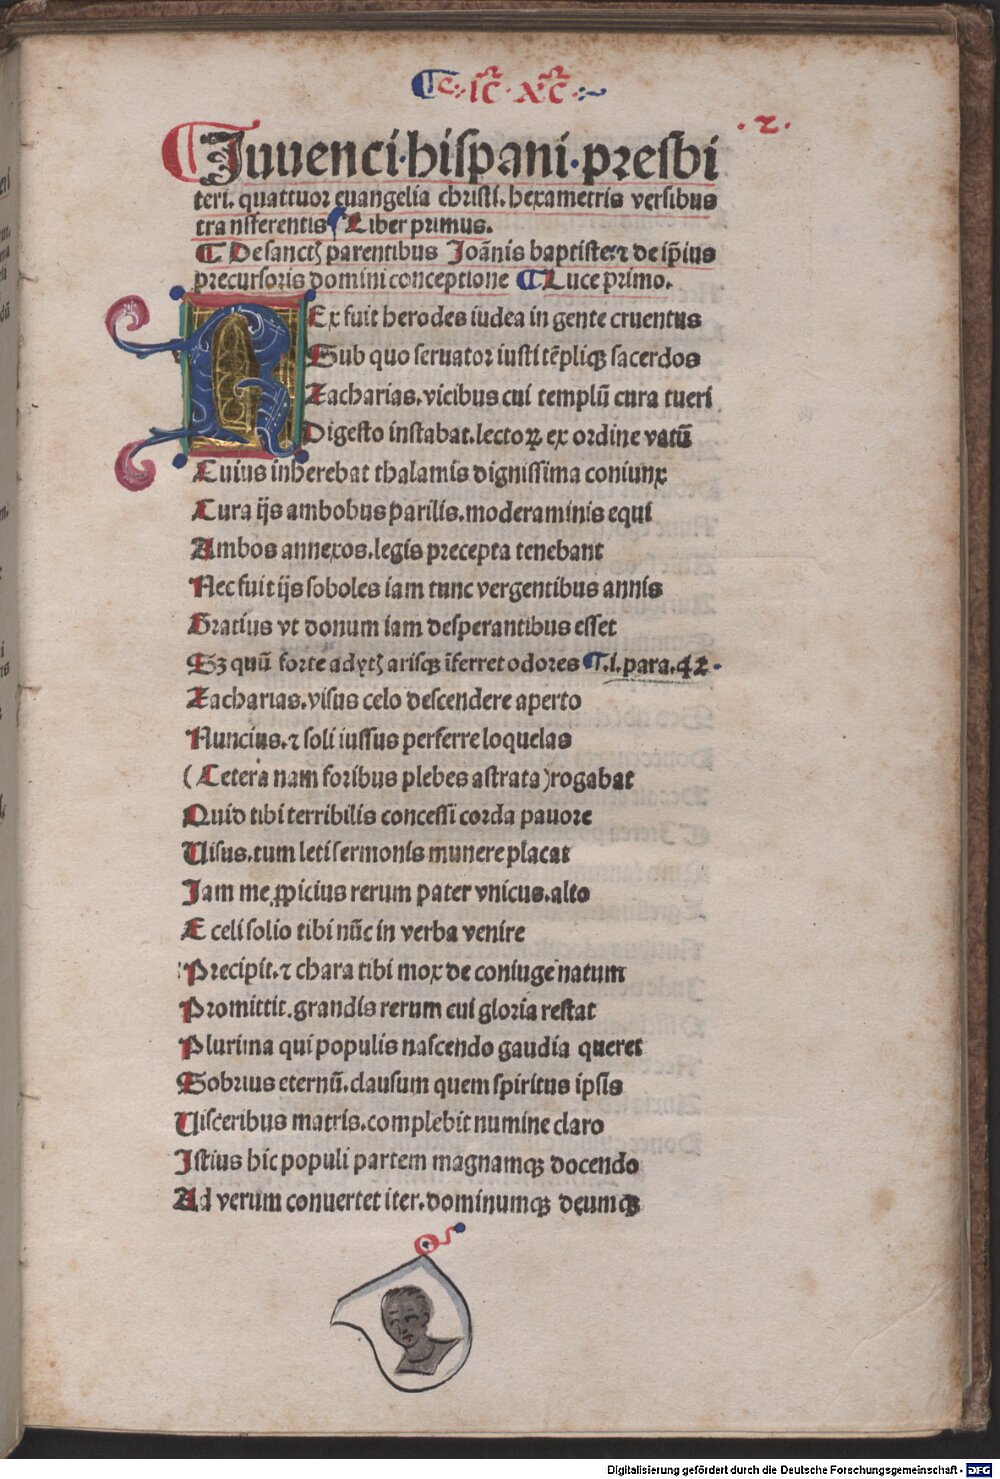 IC XC
.2.
Juvenci·hispani·presbi
teri. quattuor euangelia christi. hexametris versibus
transferentis Liber primus.
De sanctꝭ parentibus Joãnis baptiste: ⁊ de ip̃ius
precursoris domini conceptione Luce primo.
Rex fuit herodes iudea in gente cruentus
Sub quo seruator iusti tẽpliqꝫ sacerdos
Zacharias. vicibus cui templũ cura tueri
Digesto instabat. lectoꝝ ex ordine vatũ
Cuius inherebat thalamis dignissima coniunx
Cura ijs ambobus parilis. moderaminis equi
Ambos annexos. legis precepta tenebant
Nec fuit ijs soboles iam tunc vergentibus annis
Gratius vt donum iam desperantibus esset
Sꝫ quũ forte adytꝭ arisqꝫ ĩferret odores .1. para. 42.
Zacharias. visus celo descendere aperto
Nuncius. ⁊ soli iussus perferre loquelas
(Cetera nam foribus plebes astrata) rogabat
Quid tibi terribilis concessi corda pauore
Uisus. tum leti sermonis munere placat
Jam me ꝓpicius rerum pater vnicus. alto
E celi solio tibi nũc in verba venire
Precipit. ⁊ chara tibi mox de coniuge natum
Promittit. grandis rerum cui gloria restat
Plurima qui populis nascendo gaudia queret
Sobrius eternũ. clausum quem spiritus ipsis
Uisceribus matris. complebit numine claro
Istius hic populi partem magnamqꝫ docendo
Ad verum conuertet iter. dominumqꝫ deumqꝫ
Digitalisierung gefördert durch die Deutsche Forschungsgemeinschaft - DFG